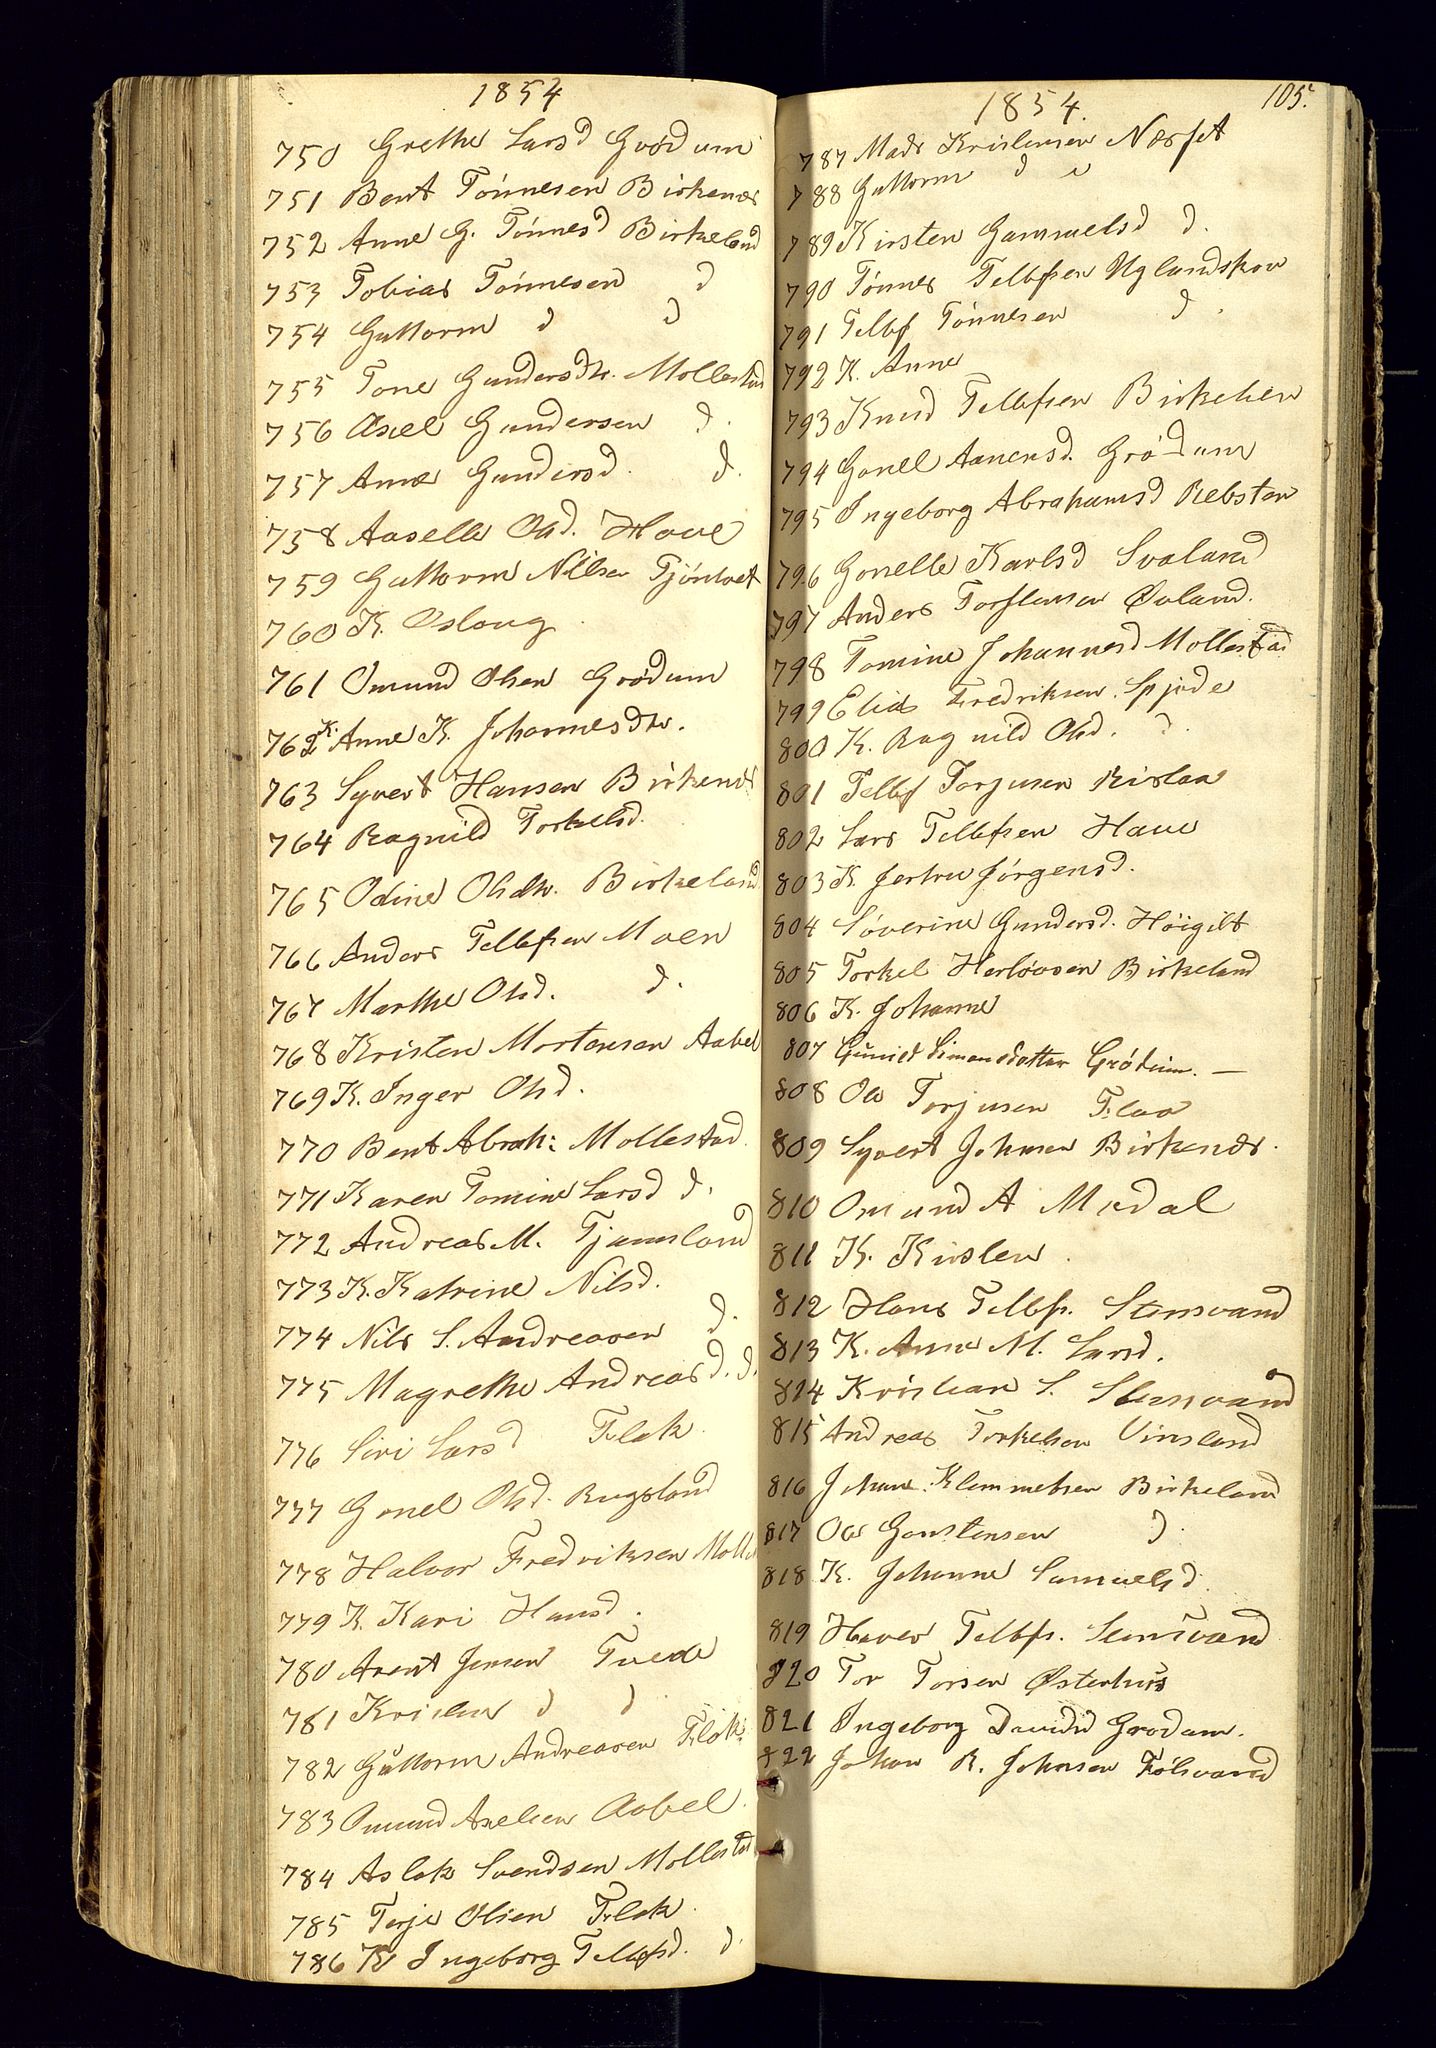 1854
750 Grethe Larsd Grødum
751 Bent Tønnesen Birkenæs
752 Anne G. Tønnesd Birkeland
753 Tobias Tønnesen d
754 Guttorm d d
755 Tone Gundersdtr. Mollestad
756 Axel Gundersen d.
757 Anne Gundersd. d.
758 Aaselle Olsd. Hove
759 Guttorm Nilsen Tjöntvet
760 K. Oslaug
761 Omund Olsen Grødum
762 K. Anne K. Johannesdtr.
763 Syvert Hansen Birkenæs
764 Ragnild Torkelsd.
765 Odine Olsdtr. Birkeland
766 Anders Tellefsen Moen
767 Marthe Olsd. d.
768 Kristen Mortensen Aabel
769 K. Inger Olsd.
770 Bent Abrah: Mollestad
771 Karen Tomine Larsd d.
772 Andreas M. Tjomsland
773 K. Katrine Nilsd.
774 Nils S. Andreasen d.
775 Magrethe Andreasd. d.
776 Siri Larsd Flak
777 Gonel Olsd. Rugsland
778 Halvor Fredriksen Molle
779 K. Kari Hansd.
780 Arent Jensen Tvede
781 Kristen d d
782 Guttorm Andreasen Flak
783 Omund Axelsen Aabel
784 Aslak Svendsen Mollestad
785 Terje Olsen Flak
786 K Ingeborg Tellefsd. d.
1854. 105.
787 Mads Kristensen Næset
788 Guttorm d
789 Kirsten Gammelsd d.
790 Tønnes Tellefsen Uglandskov
791 Tellef Tønnesen d.
792 K. Anne
793 Knud Tellefsen Birkelien
794 Gonel Aanensd. Grødum
795 Ingeborg Abrahamsd Rebsten
796 Gonelle Karlsd Svaland
797 Anders Torstensen Øvland.
798 Tomine Johannesd Mollestad
799 Elias Fredriksen. Spjode
800 K. Ragnild Olsd. d.
801 Tellef Torjusen Rislaa
802 Lars Tellefsen Have
803 K. Jertru Jörgensd.
804 Söverine Gundersd. Höigilt
805 Torkel Herlövsen Birkeland
806 K. Johanne
807 Gunild Simonsdatter Grødum. —
808 Ole Torjusen Flaa
809 Syvert Johnsen Birkenæs.
810 Omund A Medal
811 K. Kirsten.
812 Hans Tellefs. Stensvand
813 K. Anne M. Larsd.
814 Kristian S. Stensvand
815 Andreas Torkelsen Vinsland
816 Johan Klemmetsen Birkeland
817 Ole Gonstensen d.
818 K. Johanne Samuelsd.
819 Haver Tellefs. Stensvand
820 Tor Torsen Østerhus
821 Ingeborg Davidsd Grødum.
822 Johan R. Johnsen Fölsvand